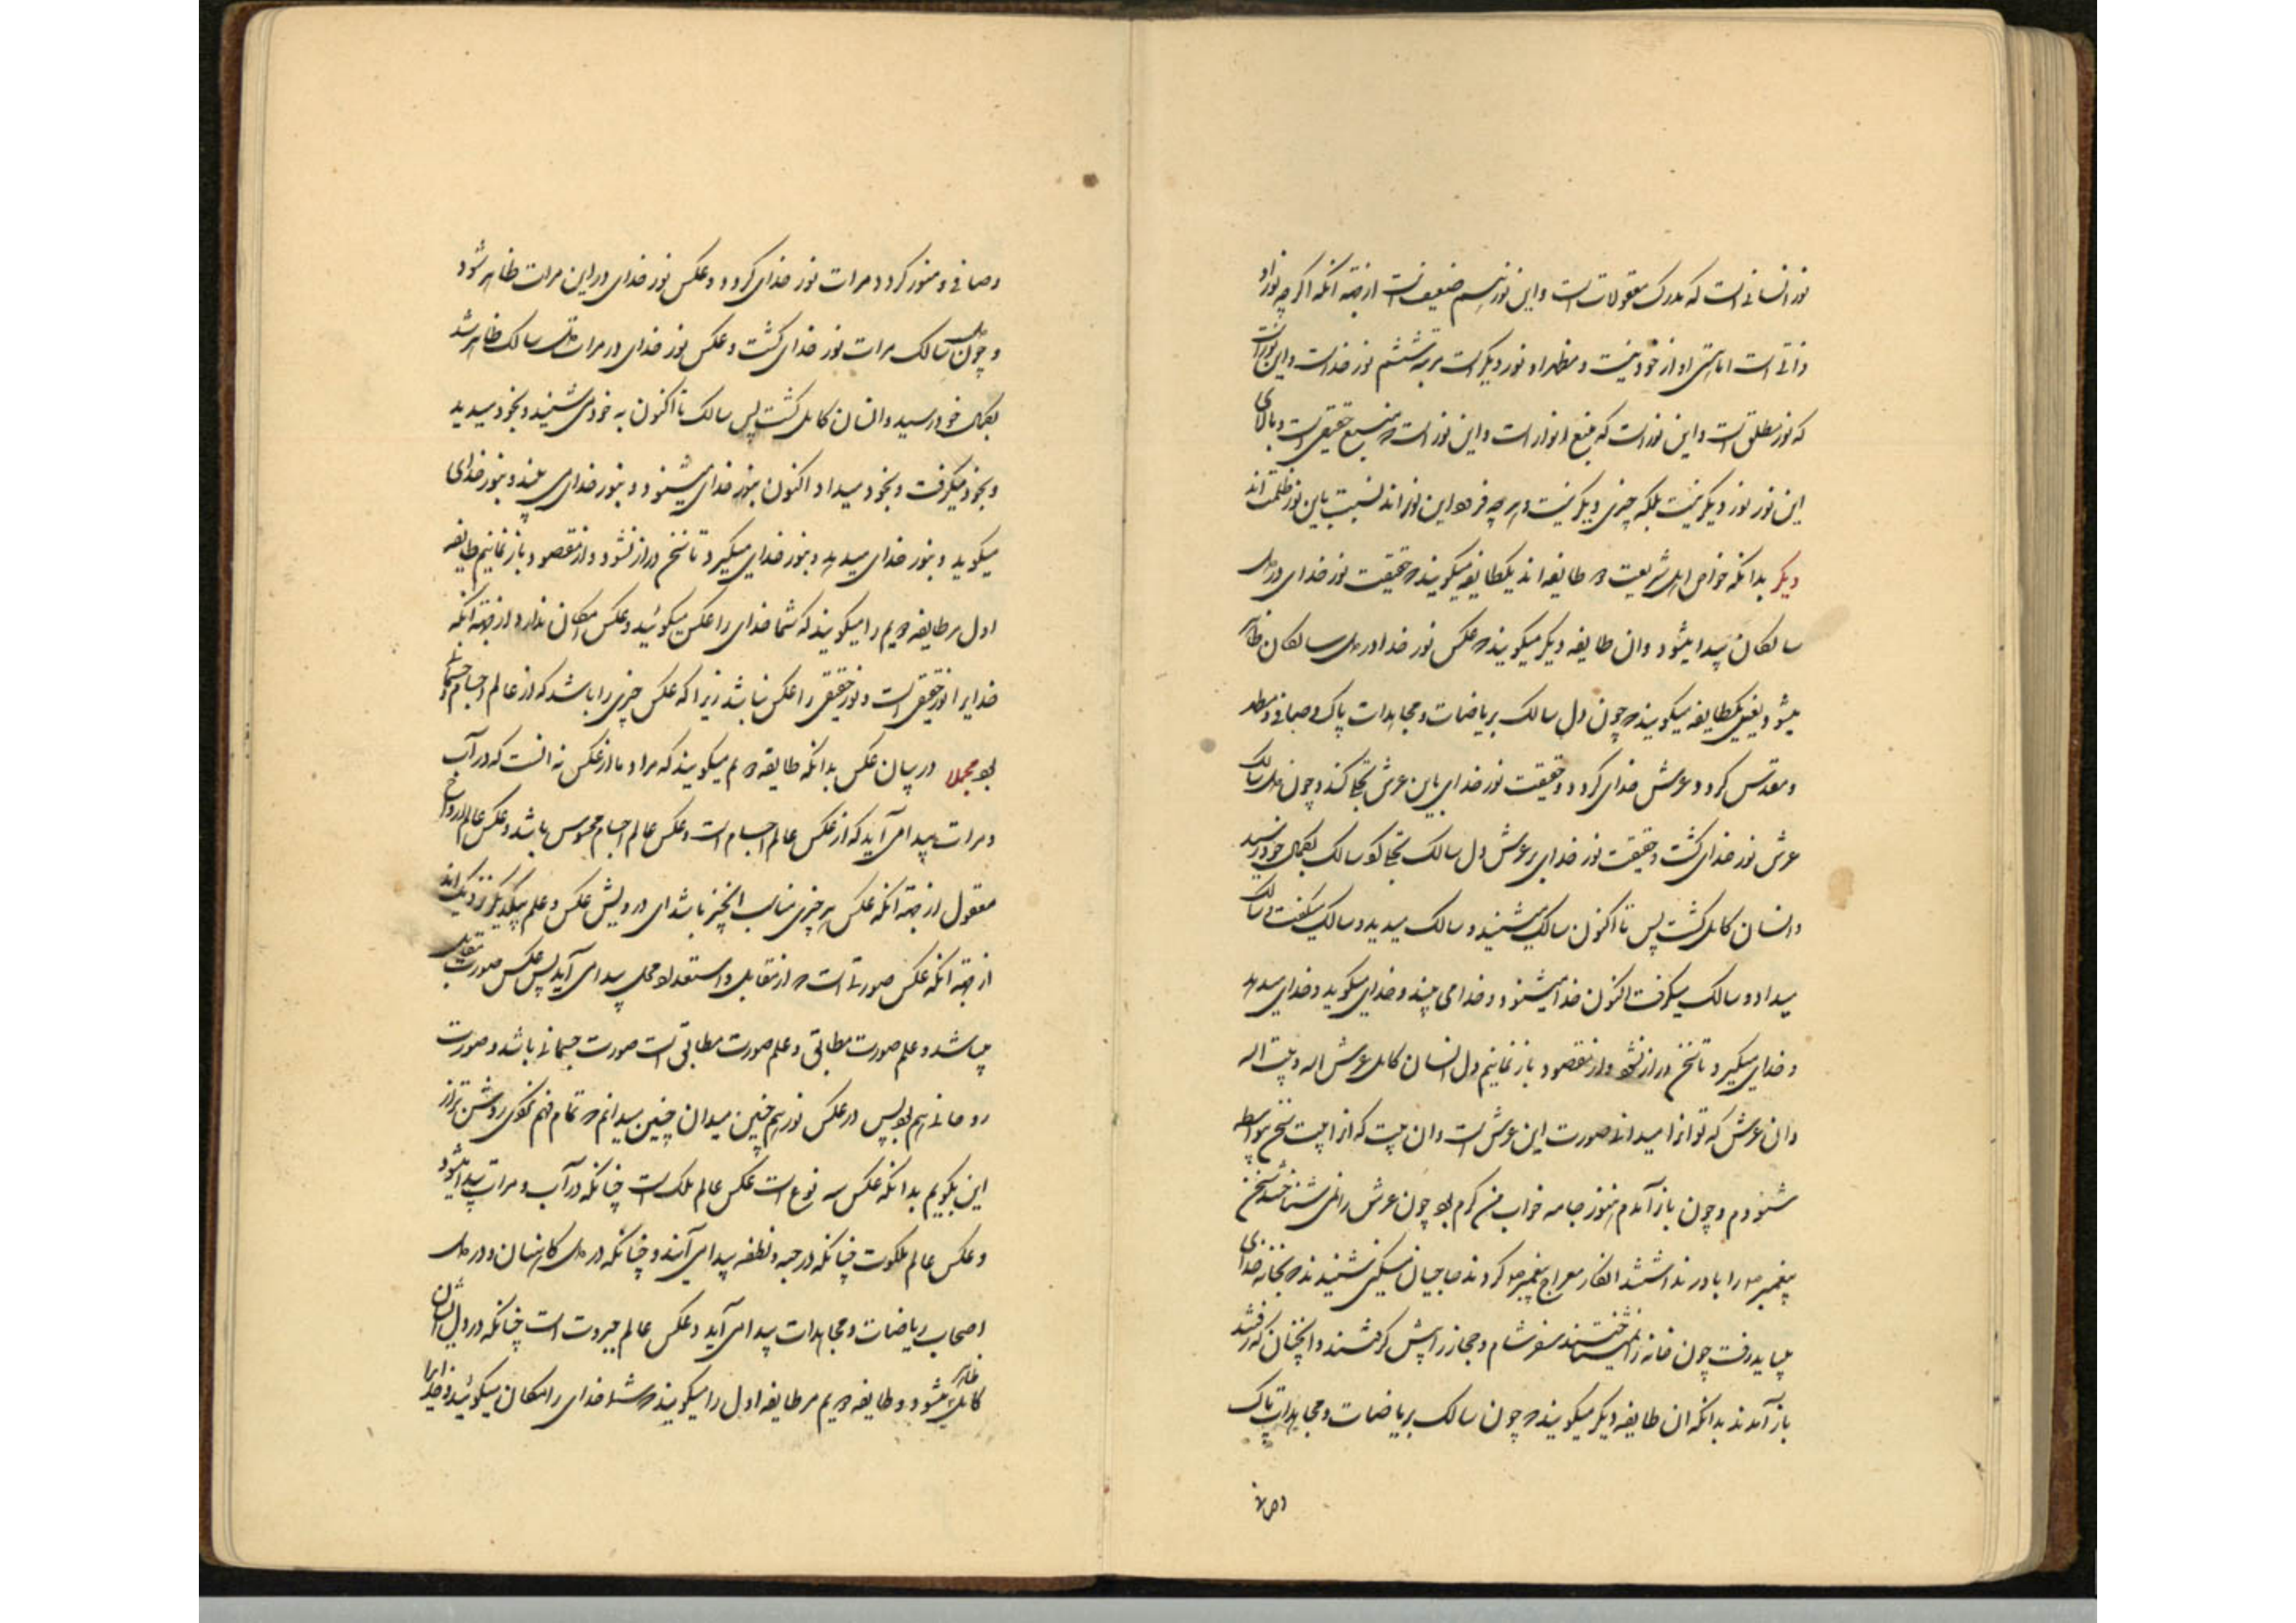 نور انسانی است که مدرک معقولات است و این نور هم ضعیف است از جهة آنکه اگر چه نور او
ذاتی است اما هستی او از خود نیست و مظهر او نور دیگر است مرتبه ششم نور خداست و این نور است
که نور مطلق است و این نور است که منبع انوار است و این نور است که منبع حقیقی است و بالای
این نور نور دیگر نیست بلکه چیزی دیگر نیست و هر چه فرود این نوراند نسبت باین نور ظلمت اند
دیگر بدانکه خواص اهل شریعت دو طایفه اند یکطایفه میگویند که حقیقت نور خدای در دل
سالکان پیدا میشود و ان طایفه دیگر میگویند که عکس نور خدا در دل سالکان ظاهر
میشود یعنی یکطایفه میگویند که چون دل سالک بریاضات و مجاهدات پاک و صافی و مطهر
و مقدس کردد و عرش خدای کردد و حقیقت نور خدای باین عرش تجلی کند و چون دل سالک
عرش نور خدای کشت و حقیقت نور خدای بر عرش دل سالک تجلی کرد سالک بکمال خود رسید
و انسان کامل کشت پس تا اکنون سالک میشنید و سالک میدید و سالک میگفت و سالک
میداد و سالک میگرفت اکنون خدا میشنود و خدا می بیند و خدای میگوید و خدای میدهد
و خدای میگیرد تا سخن دراز نشود و از مقصود باز نمانیم دل انسان کامل عرش اله و بیت اله
وان عرش که تو انرا میدانی صورت این عرش است و ان بیت که از ان بیت سخن بواسطه
شنودم و چون باز آمدم هنوز جامه خواب من کرم بود چون عرش را نمی شناختند سخن
پیغمبر را باور نداشتند انکار معراج پیغمبر کردند حاجیان مسکین شنیدند که بخانه خدای
میباید رفت چون خانه را نمی شناختند سفر شام و حجاز را پیش کرفتند و انچنان که رفتند
باز آمدند بدانکه ان طایفه دیگر میگویند که چون سالک بریاضات و مجاهدات پاک
و صافی
و صافی و منور کردد مرات نور خدای کردد و عکس نور خدای در این مرات ظاهر شود
و چون دل سالک مرات نور خدای کشت و عکس نور خدای در مرات دل سالک ظاهر شد
بکمال خود رسید و انسان کامل کشت پس سالک تا اکنون به خود می شنید و بخود میدید
و بخود میگرفت و بخود میداد اکنون بنور خدای میشنود و بنور خدای می بیند و بنور خدای
میگوید و بنور خدای میدهد و بنور خدای میگیرد تا سخن دراز نشود و از مقصود باز نمانیم طایفه
اول مر طایفه دویم را میگویند که شما خدای را عکس میگوئید و عکس امکان ندارد از جهة آنکه
خدایرا نور حقیقی است و نور حقیقی را عکس نباشد زیرا که عکس چیزی را باشد که از عالم اجسام و جسمانی
بود مجملا در بیان عکس بدانکه طایفه دویم میگویند که مراد ما از عکس نه انست که در آب
و مرات پیدا می آید که از عکس عالم اجسام است و عکس عالم اجسام محسوس باشد و عکس عالم ارواح
معقول از جهة آنکه عکس هر چیزی مناسب انچیز باشد ای درویش عکس و علم بیکدیگر نزدیک اند
از جهة آنکه عکس صورتی است که از تقابل و استعداد محل پیدا می آید پس عکس صورت تقابل
میباشد و علم صورت مطابق و علم صورت مطابق است صورت جسمانی باشد و صورت
روحانی هم بود پس در عکس نور هم چنین میدان چنین میدانم که تمام فهم نکردی روشن تر از
این بگویم بدانکه عکس سه نوع است عکس عالم ملک است چنانکه در آب و مرات پیدا میشود
و عکس عالم ملکوت چنانکه در حبه و نطفه پیدا می آیند و چنانکه در دل کاهنان و در دل
اصحاب ریاضات و مجاهدات پیدا می آید و عکس عالم جبروت است چنانکه در دل انسان
کامل ظاهر میشود و طایفه دویم مر طایفه اول را میگویند که شما خدای را امکان میگوئید و خدایرا